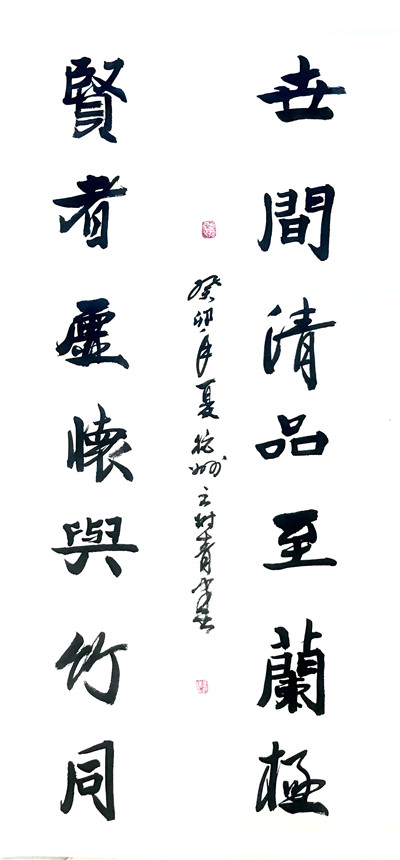 世間清品至蘭極
賢者虛懷與竹同
癸卯年夏於徐州